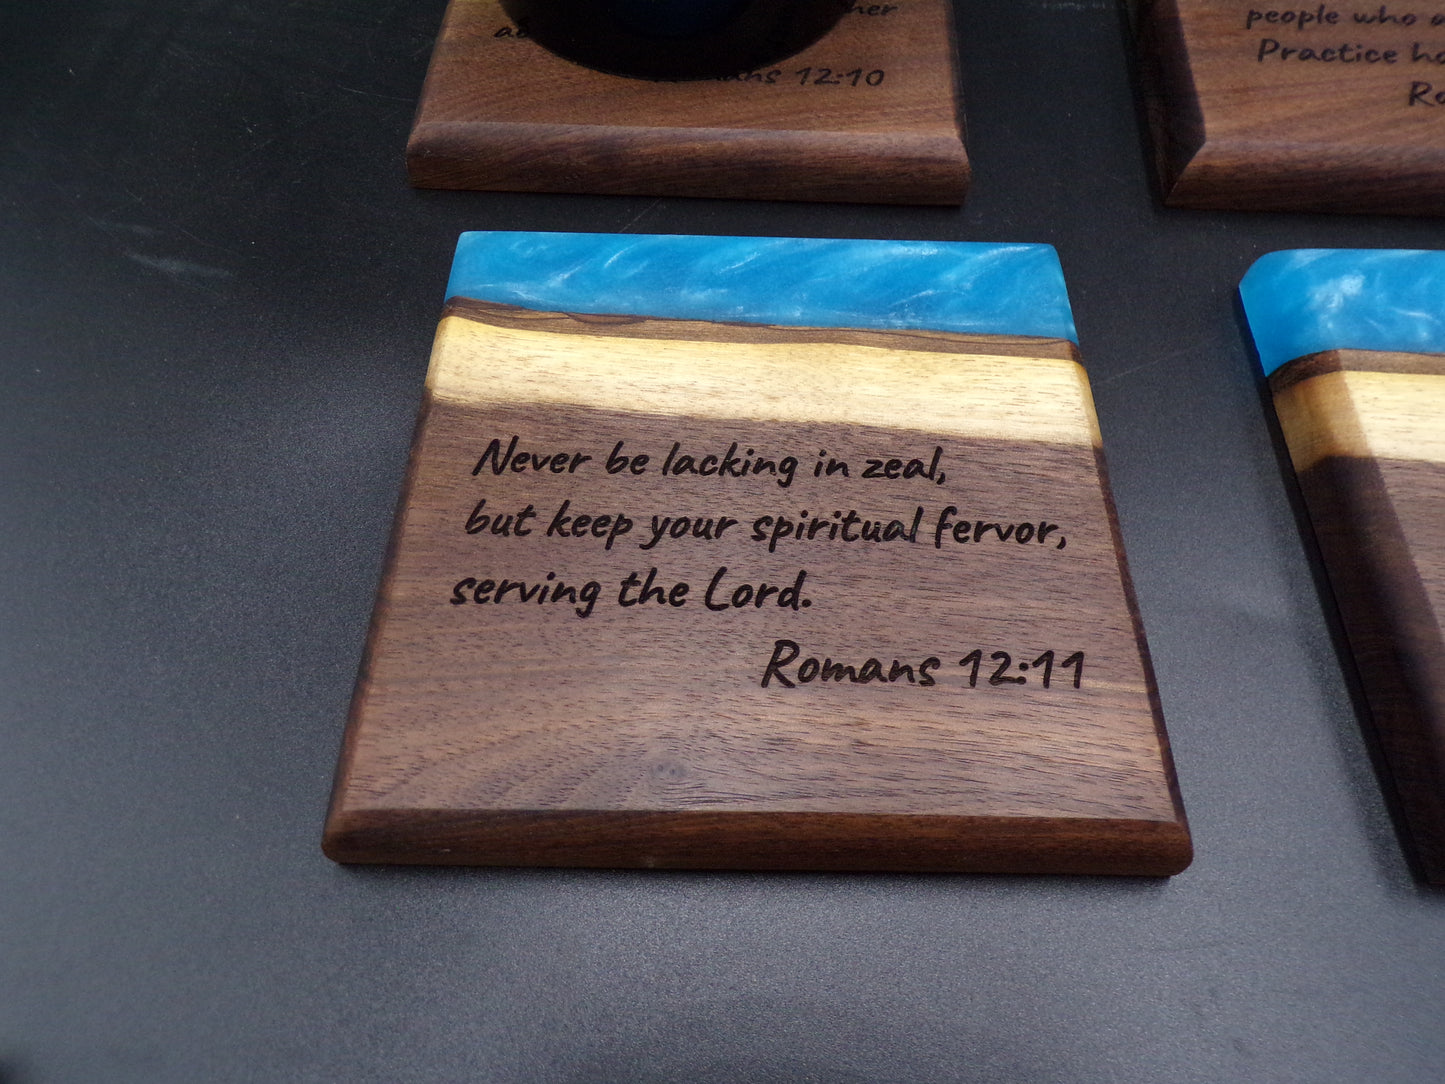 her
Romans 12:10
people who
Practice
Never be lacking in zeal,
but keep your spiritual fervor,
serving the Lord.
Romans 12:11